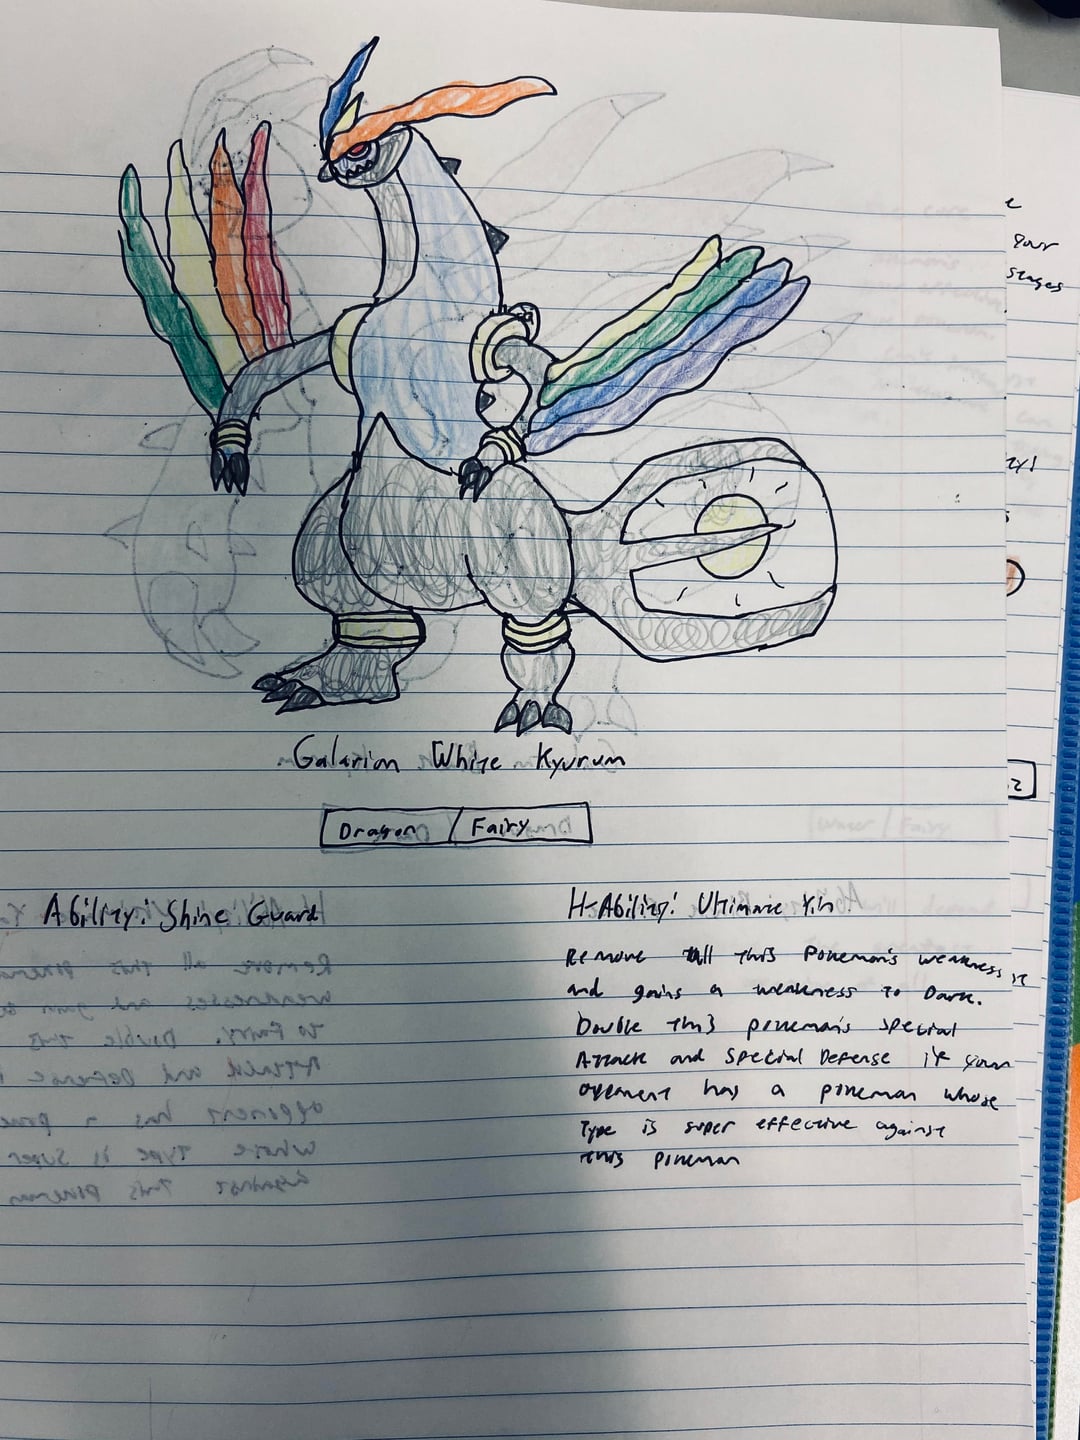 e
your
stages
Galarian White Kyurum
Dragon / Fairy
Ability: Shine Guard
H-Ability: Ultimate Yin
Remove all this Pokemon's weaknesses
and gains a weakness to Dark.
Double this pokemon's special
Attack and Special Defense if your
opponent has a pokemon whose
type is super effective against
this pokemon